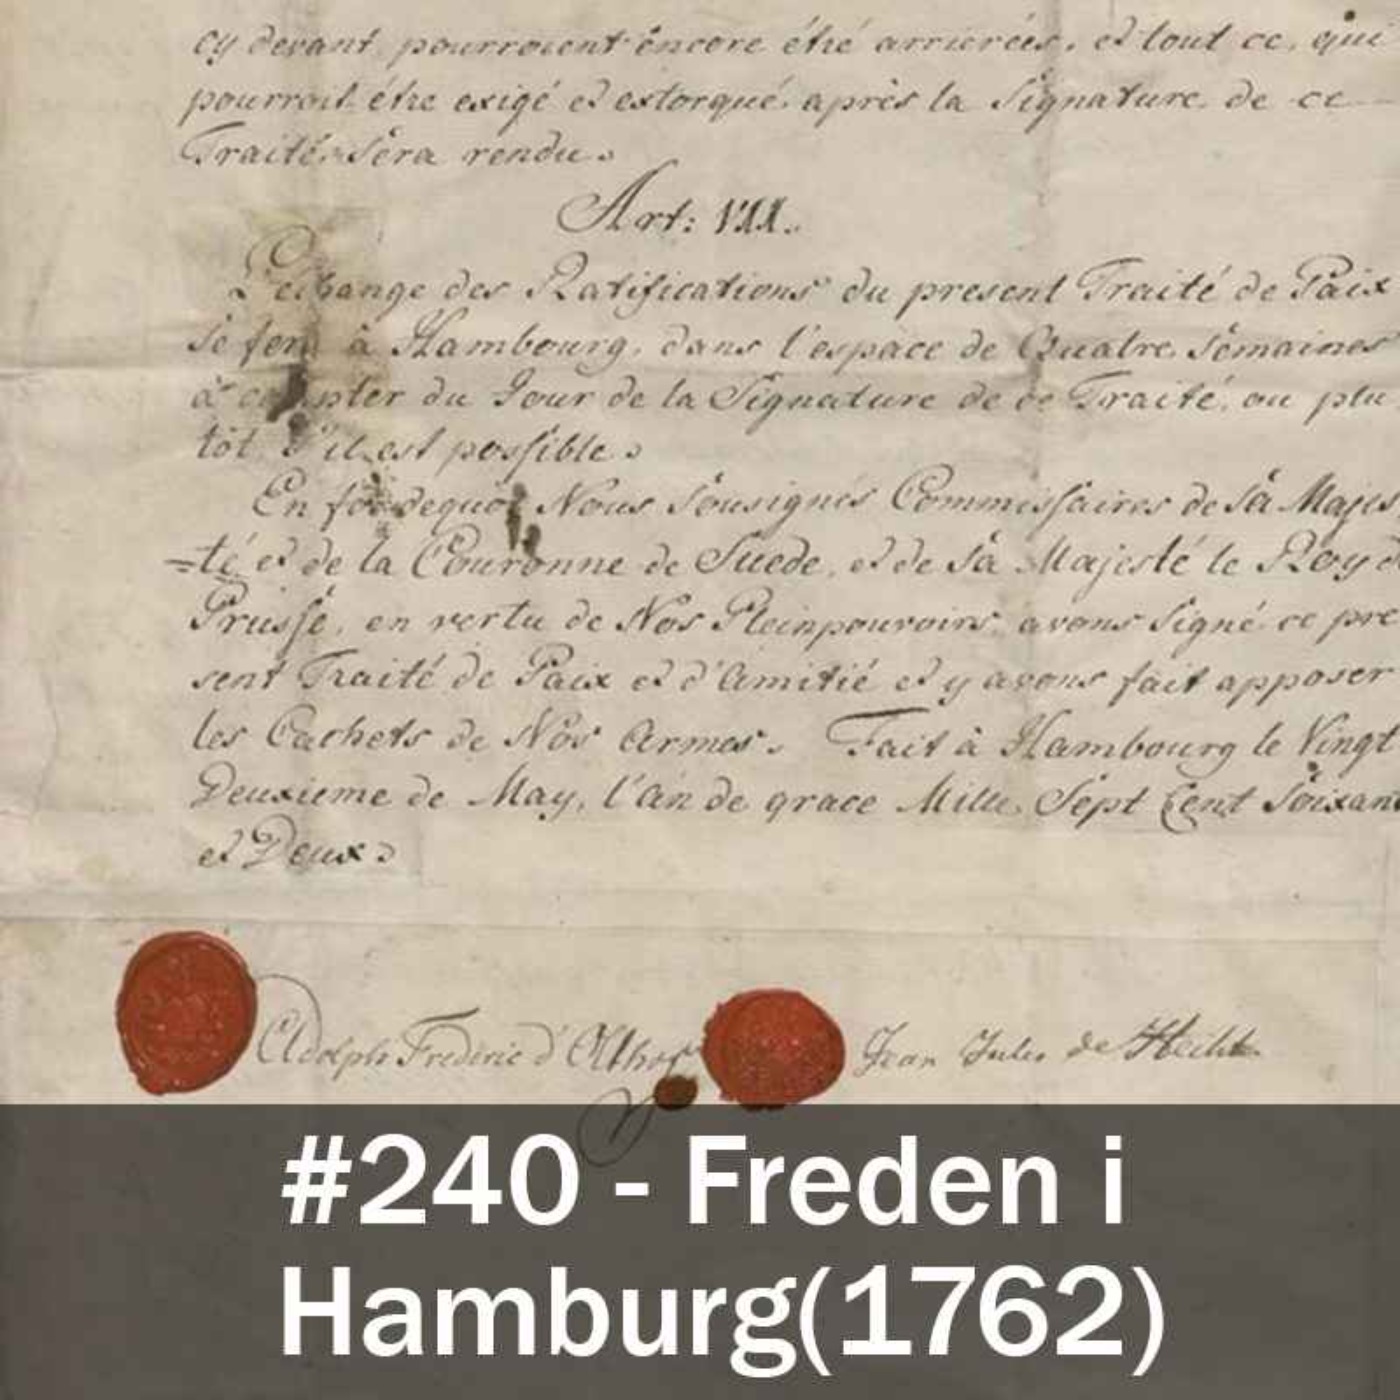 cy devant, pourroient encore étré arrierées, et tout ce, qui
pourroit étre exigé et extorqué après la Signature de ce
Traité, Sera rendu.
Art: VII.
L'échange des Ratifications du present Traité de Paix
Se fera à Hambourg, dans l'espace de Quatre Semaines
à compter du Jour de la Signature de ce Traité, ou plu
tôt S'il est possible.
En foi dequoi Nous Sousignés Commissaires de Sa Majes
=té et de la Couronne de Suede, et de Sa Majesté le Roy d
Prusse, en vertu de Nos Pleinpouvoirs avons Signé ce pre
sent Traité de Paix et d'Amitié et y avons fait apposer
les Cachets de Nos Armes. Fait à Hambourg le Vingt
Deuxieme de May, l'an de grace Mille Sept Cent Soixant
et Deux.
Adolph Frederic d'Olthof Jean Jules de Hecht
#240 - Freden i
Hamburg(1762)